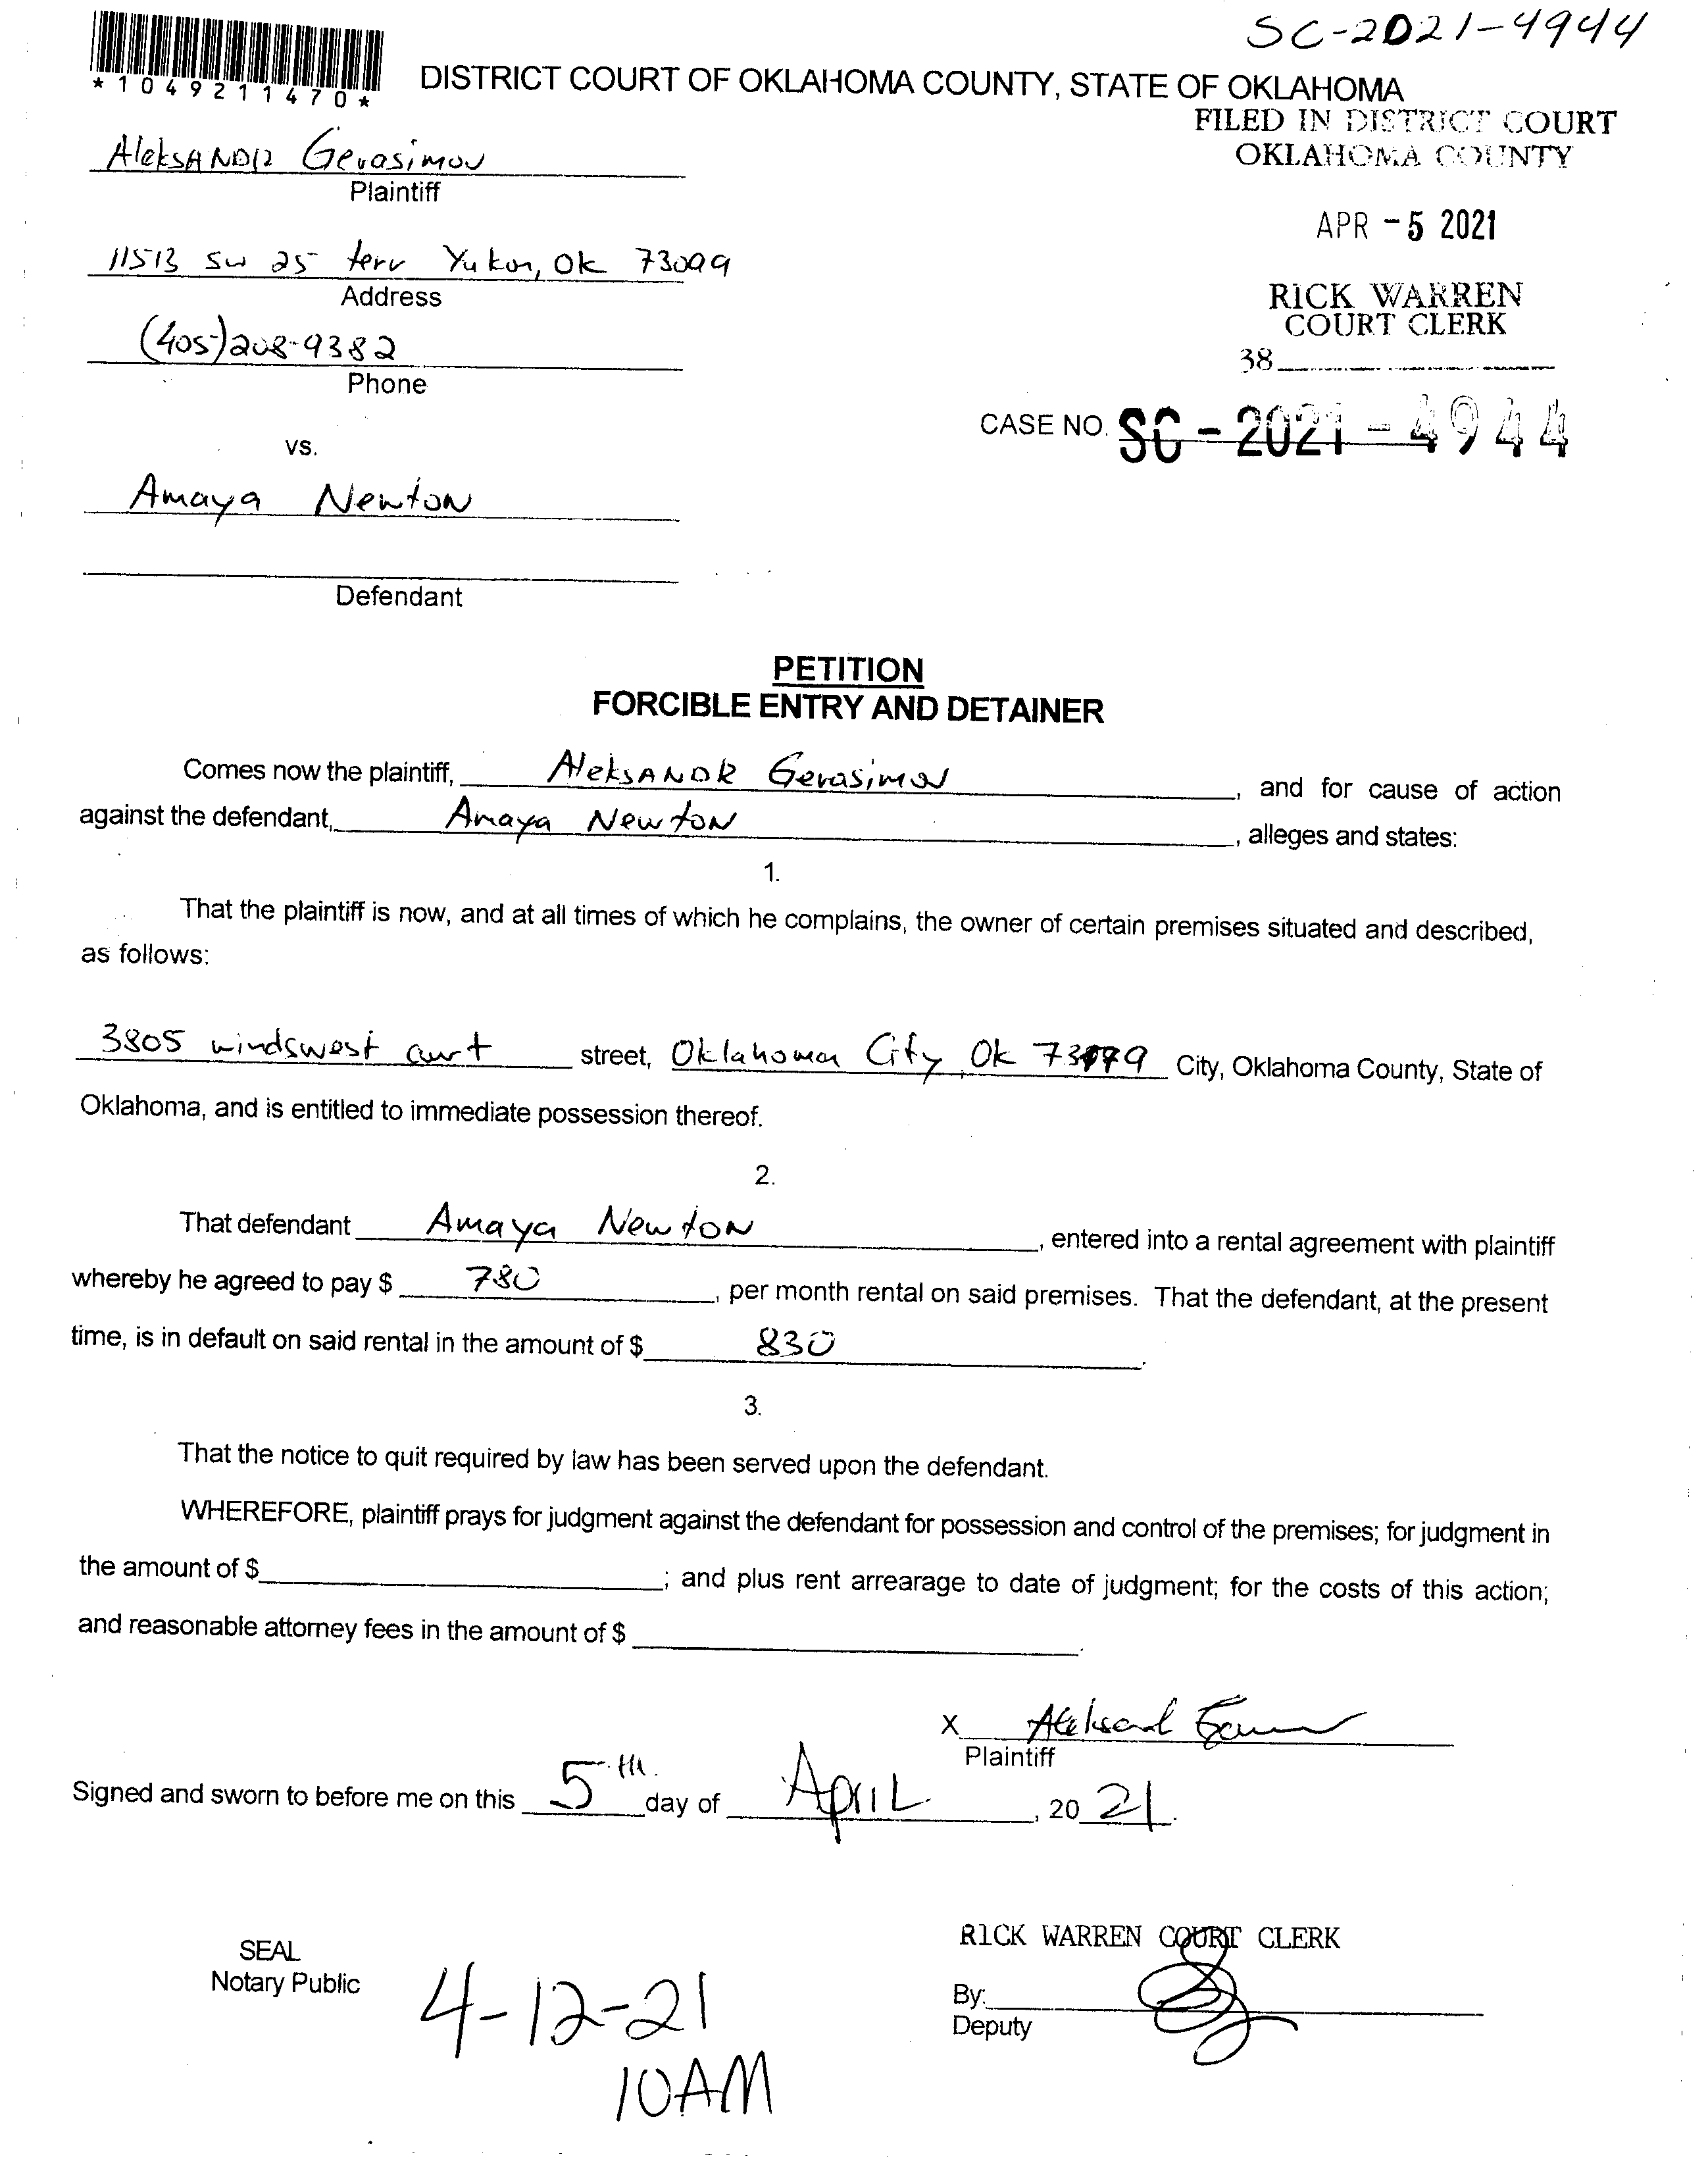 SC-2021-4944
*1049211470*
DISTRICT COURT OF OKLAHOMA COUNTY, STATE OF OKLAHOMA
FILED IN DISTRICT COURT
OKLAHOMA COUNTY
AleksANDR Gerasimov
Plaintiff
APR -5 2021
11513 SW 25 terr Yukon, Ok 73099
Address
RICK WARREN
COURT CLERK
(405)208-9382
38
Phone
CASE NO. SC - 2021 - 4944
vs.
Amaya Newton
Defendant
PETITION
FORCIBLE ENTRY AND DETAINER
Comes now the plaintiff, AleksANDR Gerasimov, and for cause of action
against the defendant, Amaya Newton, alleges and states:
1.
That the plaintiff is now, and at all times of which he complains, the owner of certain premises situated and described,
as follows:
3805 windswest court street, Oklahoma City, Ok City, Oklahoma County, State of
Oklahoma, and is entitled to immediate possession thereof.
2.
That defendant Amaya Newton, entered into a rental agreement with plaintiff
whereby he agreed to pay $ 780, per month rental on said premises. That the defendant, at the present
time, is in default on said rental in the amount of $ 830.
3.
That the notice to quit required by law has been served upon the defendant.
WHEREFORE, plaintiff prays for judgment against the defendant for possession and control of the premises; for judgment in
the amount of $ ; and plus rent arrearage to date of judgment; for the costs of this action;
and reasonable attorney fees in the amount of $ .
X
Plaintiff
Signed and sworn to before me on this 5th day of April, 2021.
RICK WARREN COURT CLERK
SEAL
Notary Public
4-12-21
10AM
By:
Deputy